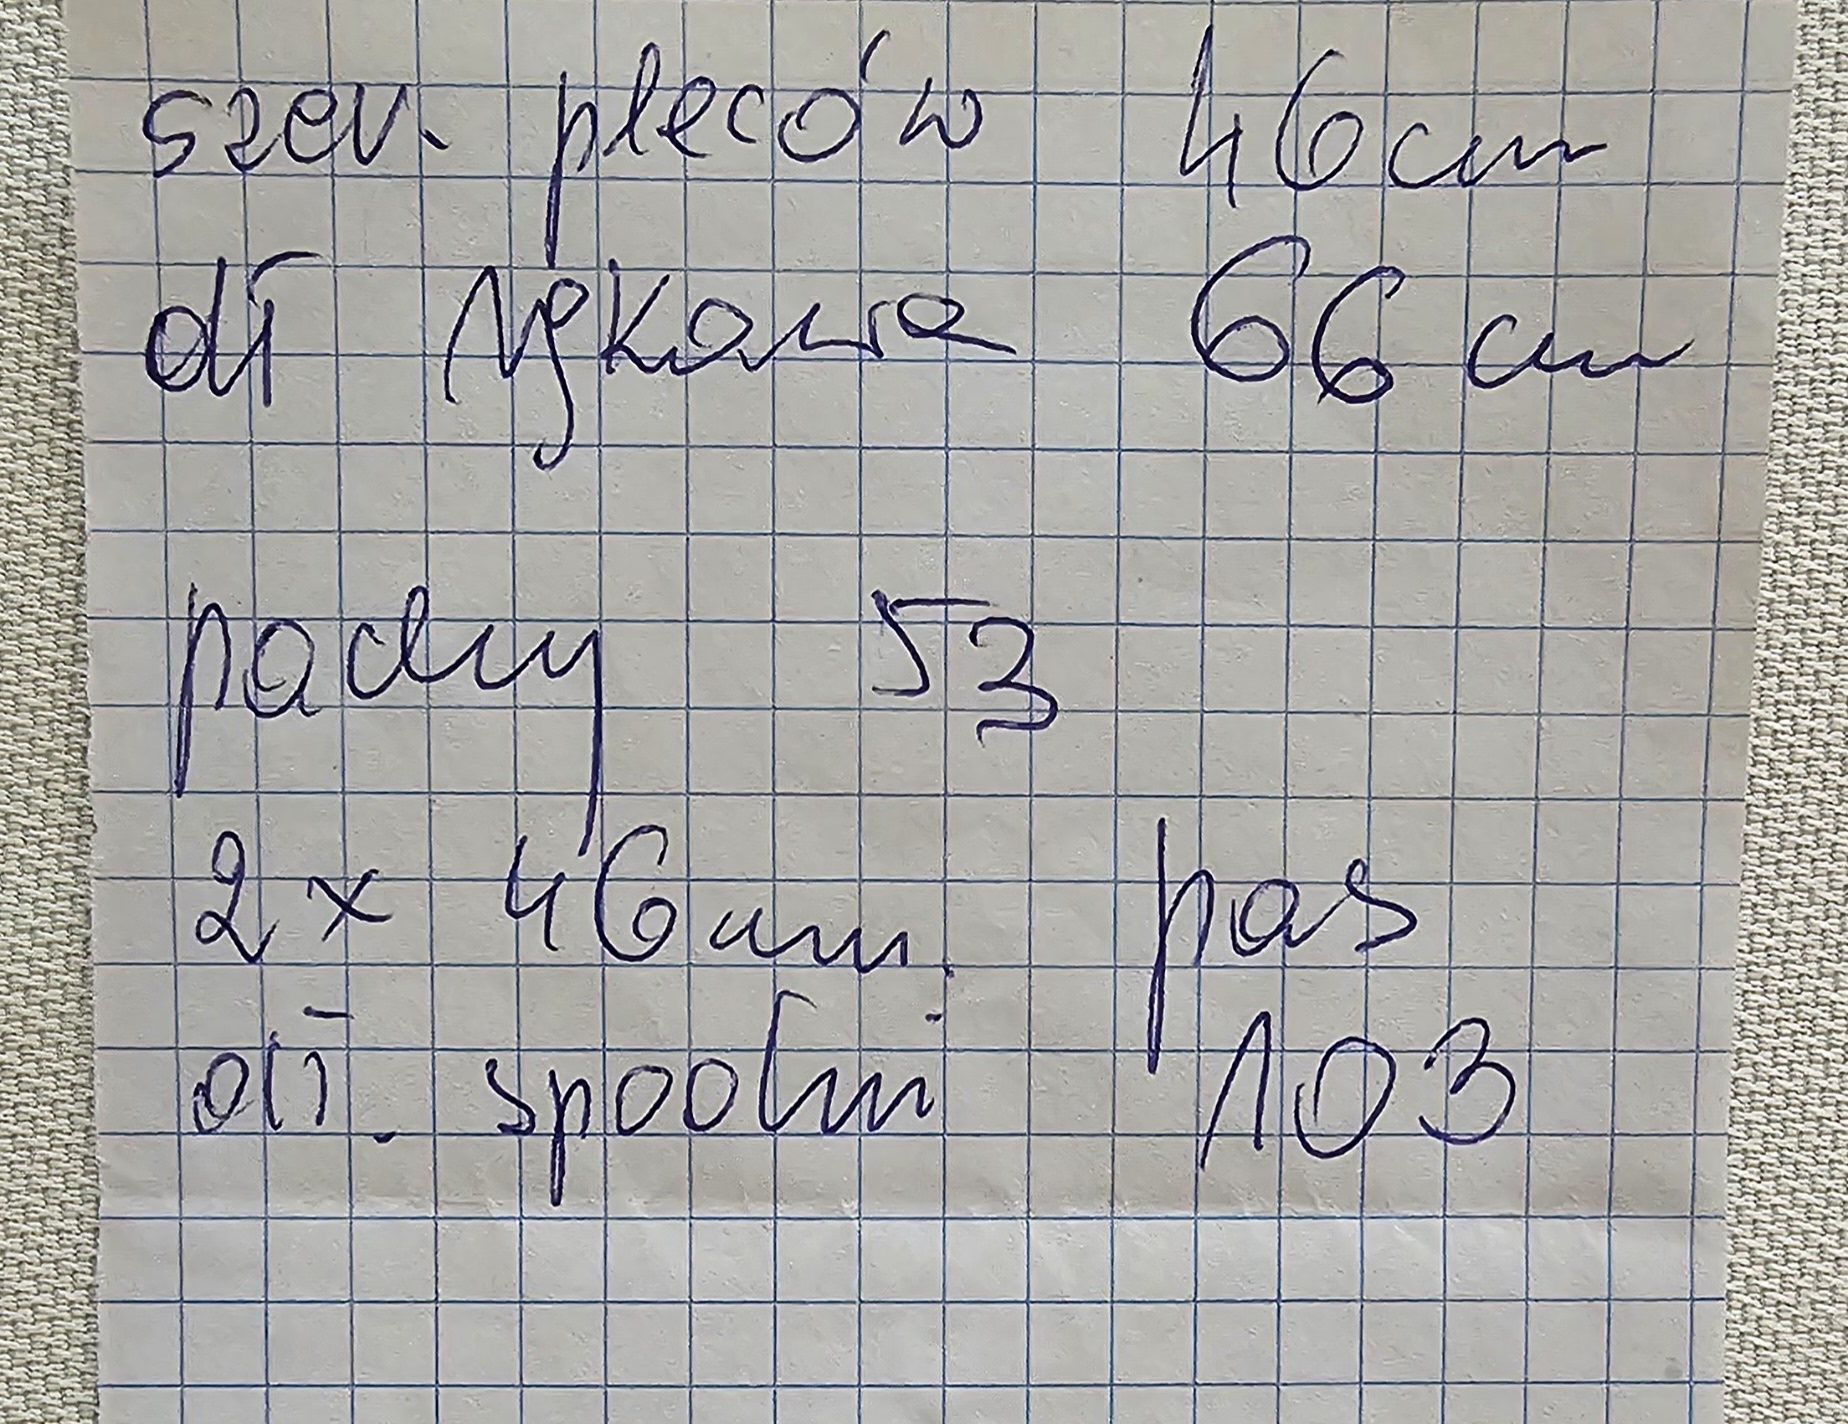 szer. pleców 46cm
dł rękawa 66 cm
pachy 53
2 x 46cm. pas
dł. spodni 103